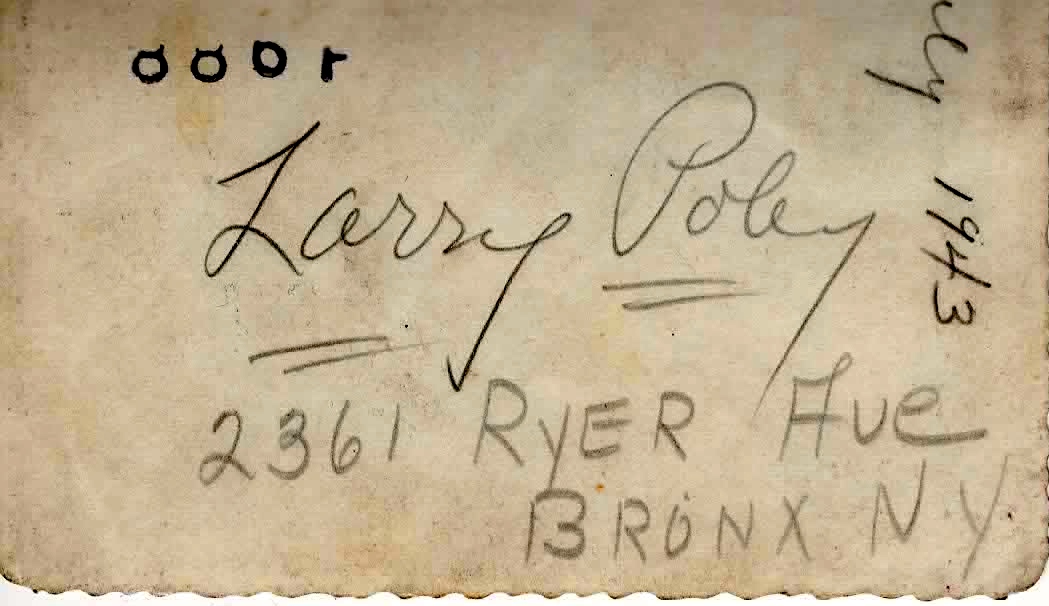 Larry Poley
2361 RYER Ave
BRONX N.Y.
1943